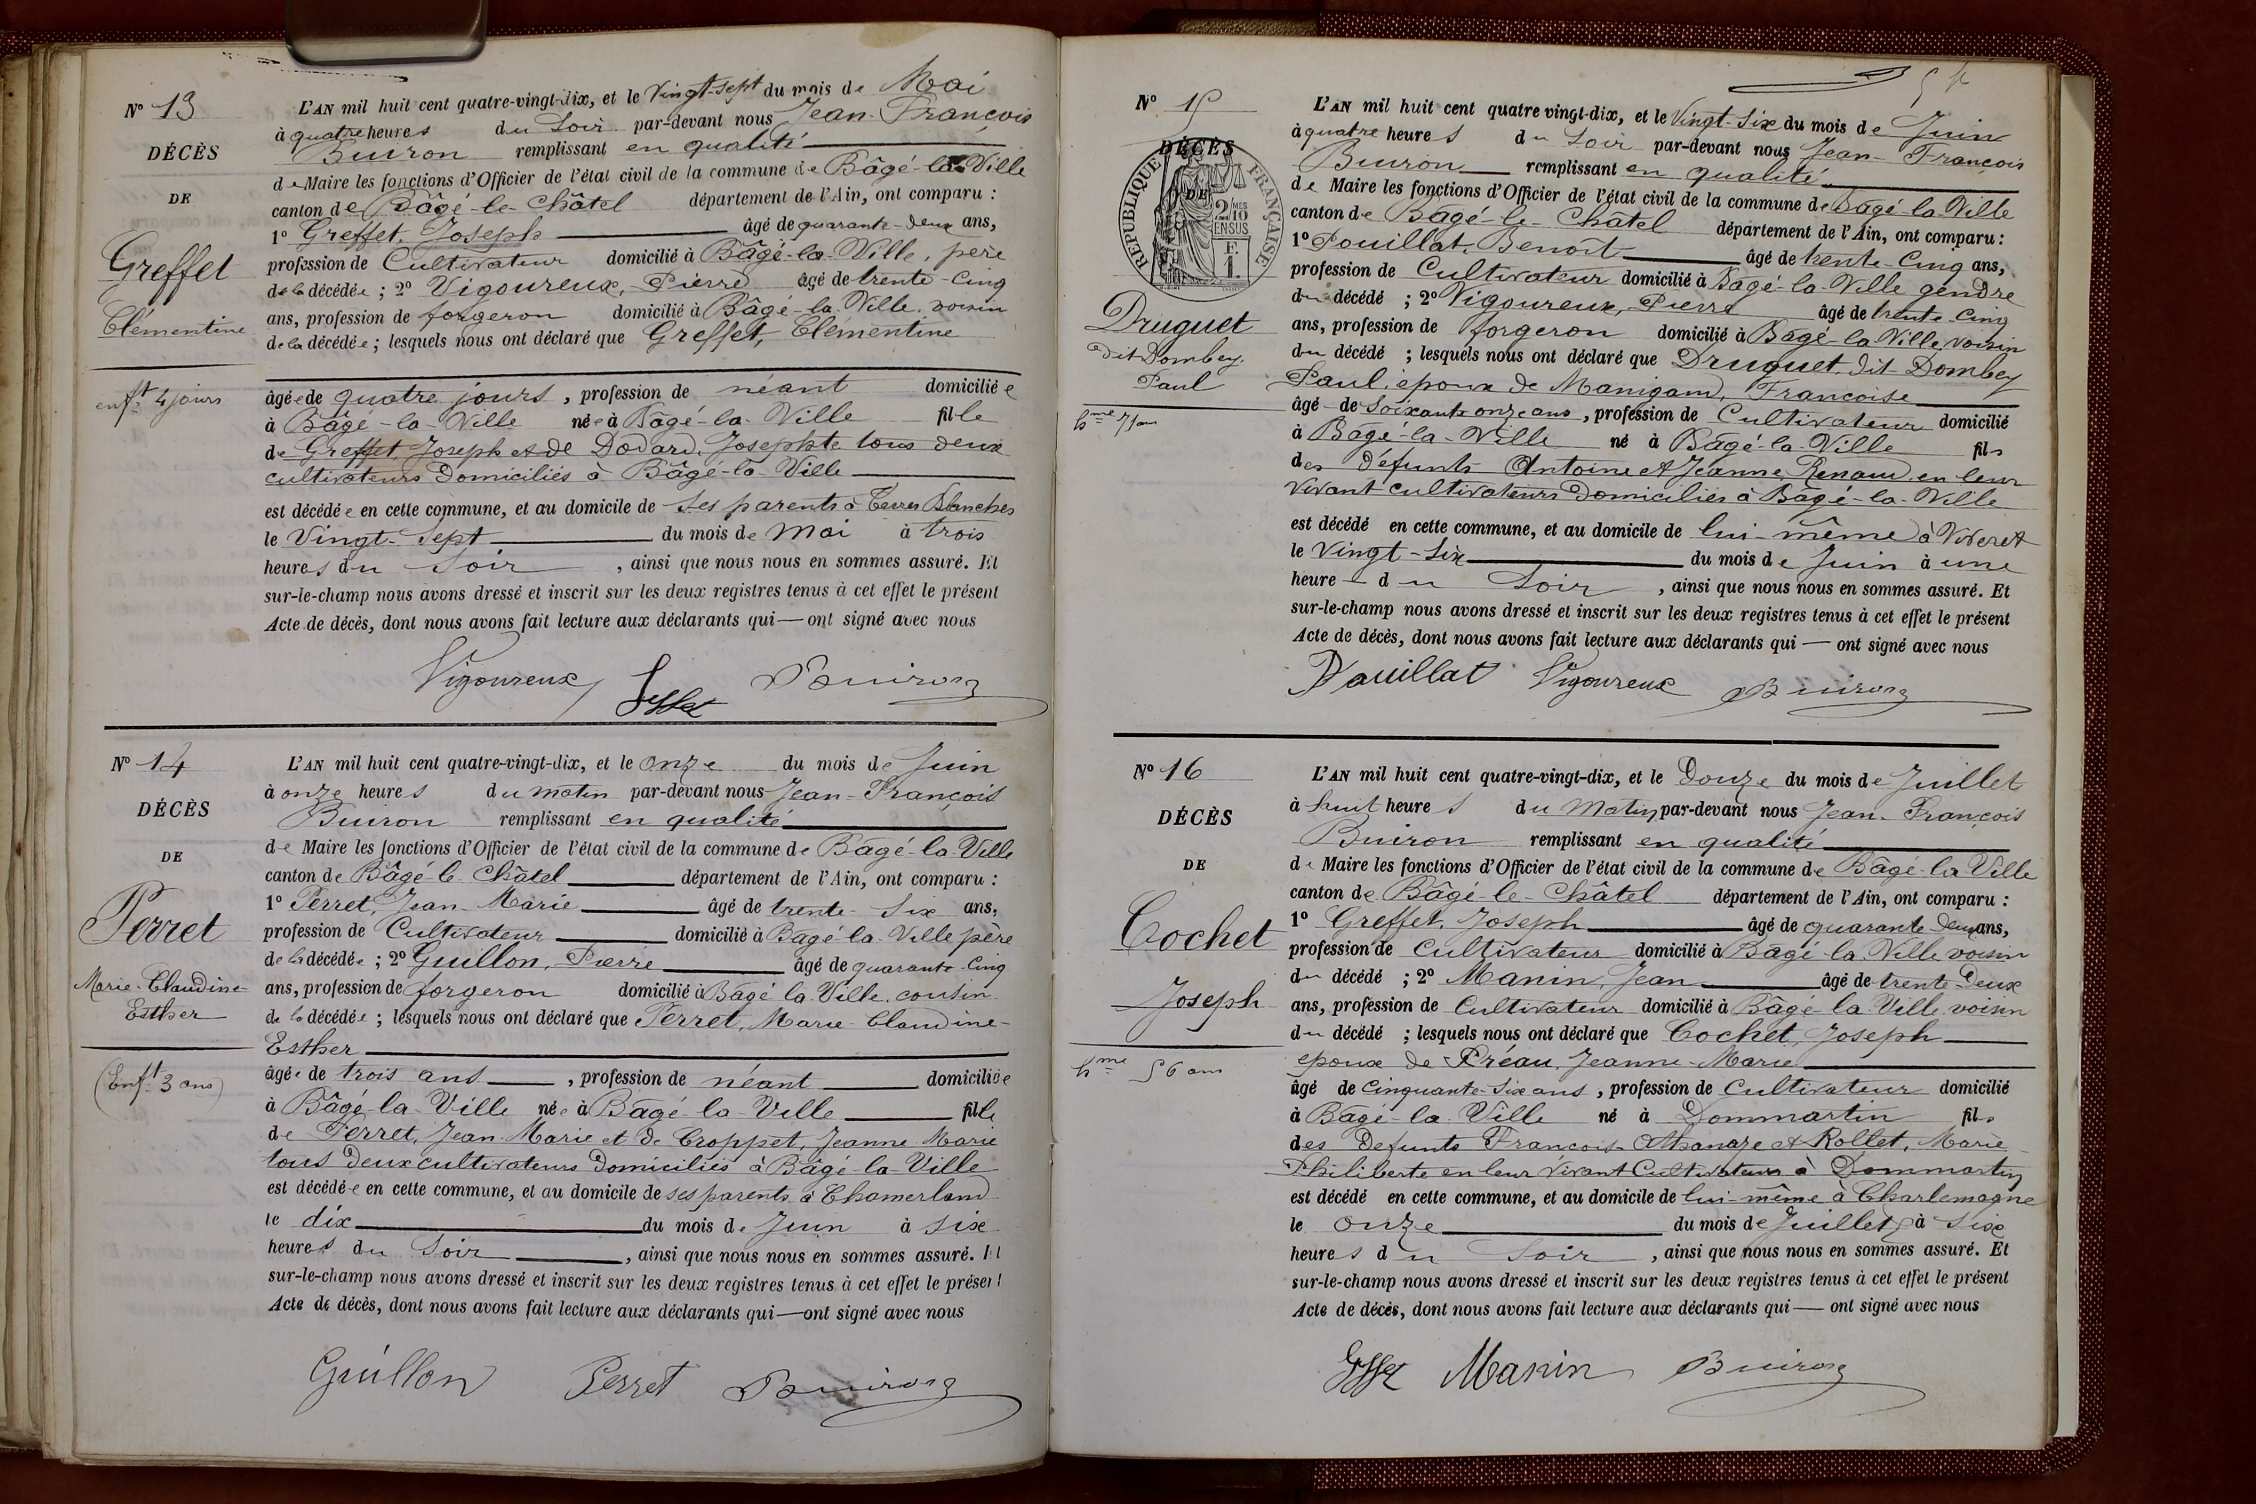 N° 13
DÉCÈS
DE
Greffet
Clémentine
enft 4 jours
L'AN mil huit cent quatre-vingt-dix, et le Vingt-sept du mois de Mai
à quatre heures du Soir par-devant nous Jean-François
Buiron remplissant en qualité
de Maire les fonctions d'Officier de l'état civil de la commune de Bâgé-la-Ville
canton de Bâgé-le-Châtel département de l'Ain, ont comparu :
1° Greffet, Joseph âgé de quarante-deux ans,
profession de Cultivateur domicilié à Bâgé-la-Ville, père
de la décédée ; 2° Vigoureux, Pierre âgé de trente-cinq
ans, profession de forgeron domicilié à Bâgé-la-Ville, voisin
de la décédée ; lesquels nous ont déclaré que Greffet, Clémentine
âgée de quatre jours, profession de néant domiciliée
à Bâgé-la-Ville née à Bâgé-la-Ville fille
de Greffet Joseph et de Dodard, Josephte tous deux
cultivateurs domiciliés à Bâgé-la-Ville
est décédée en cette commune, et au domicile de ses parents à Terres Blanches
le Vingt-sept du mois de Mai à trois
heures du Soir, ainsi que nous nous en sommes assuré. Et
sur-le-champ nous avons dressé et inscrit sur les deux registres tenus à cet effet le présent
Acte de décès, dont nous avons fait lecture aux déclarants qui — ont signé avec nous
Vigoureux Buiron
N° 14
DÉCÈS
DE
Perret
Marie-Claudine-
Esther
(Enft 3 ans)
L'AN mil huit cent quatre-vingt-dix, et le onze du mois de Juin
à onze heures du matin par-devant nous Jean-François
Buiron remplissant en qualité
de Maire les fonctions d'Officier de l'état civil de la commune de Bâgé-la-Ville
canton de Bâgé-le-Châtel département de l'Ain, ont comparu :
1° Perret, Jean-Marie âgé de trente-six ans,
profession de Cultivateur domicilié à Bâgé-la-Ville père
de la décédée ; 2° Guillon, Pierre âgé de quarante-cinq
ans, profession de forgeron domicilié à Bâgé la Ville, cousin
de la décédée ; lesquels nous ont déclaré que Perret, Marie-Claudine-
Esther
âgée de trois ans, profession de néant domiciliée
à Bâgé-la-Ville née à Bâgé-la-Ville fille
de Perret, Jean-Marie et de Croppet, Jeanne Marie
tous deux cultivateurs domiciliés à Bâgé-la-Ville
est décédée en cette commune, et au domicile de ses parents à Chamerland
le dix du mois de Juin à six
heures du Soir, ainsi que nous nous en sommes assuré. Et
sur-le-champ nous avons dressé et inscrit sur les deux registres tenus à cet effet le présent
Acte de décès, dont nous avons fait lecture aux déclarants qui — ont signé avec nous
Guillon Perret Buiron
N° 15
DÉCÈS
DE
RÉPUBLIQUE FRANÇAISE
2/10 MES
EN SUS
F.
1.
Druguet
dit Dombey
Paul
hme 71 ans
L'AN mil huit cent quatre vingt-dix, et le Vingt-six du mois de Juin
à quatre heures du Soir par-devant nous Jean-François
Buiron remplissant en qualité
de Maire les fonctions d'Officier de l'état civil de la commune de Bâgé-la-Ville
canton de Bâgé-le-Châtel département de l'Ain, ont comparu :
1° Pouillat, Benoît âgé de trente-cinq ans,
profession de Cultivateur domicilié à Bâgé-la-Ville gendre
du décédé ; 2° Vigoureux, Pierre âgé de trente-cinq
ans, profession de forgeron domicilié à Bâgé-la-Ville, voisin
du décédé ; lesquels nous ont déclaré que Druguet, dit Dombey
Paul, époux de Manigand, Françoise
âgé de soixante onze ans, profession de Cultivateur domicilié
à Bâgé-la-Ville né à Bâgé-la-Ville fils
des défunts Antoine et Jeanne Renaud en leur
vivant cultivateurs domiciliés à Bâgé-la-Ville
est décédé en cette commune, et au domicile de lui-même à Viveret
le Vingt-six du mois de Juin à une
heure du Soir, ainsi que nous nous en sommes assuré. Et
sur-le-champ nous avons dressé et inscrit sur les deux registres tenus à cet effet le présent
Acte de décès, dont nous avons fait lecture aux déclarants qui — ont signé avec nous
Pouillat Vigoureux Buiron
N° 16
DÉCÈS
DE
Cochet
Joseph
hme 56 ans
L'AN mil huit cent quatre-vingt-dix, et le Douze du mois de Juillet
à huit heures du Matin par-devant nous Jean-François
Buiron remplissant en qualité
de Maire les fonctions d'Officier de l'état civil de la commune de Bâgé-la-Ville
canton de Bâgé-le-Châtel département de l'Ain, ont comparu :
1° Greffet, Joseph âgé de quarante-deux ans,
profession de Cultivateur domicilié à Bâgé-la-Ville voisin
du décédé ; 2° Manin, Jean âgé de trente-deux
ans, profession de Cultivateur domicilié à Bâgé la Ville voisin
du décédé ; lesquels nous ont déclaré que Cochet, Joseph
époux de Préau, Jeanne-Marie
âgé de cinquante-six ans, profession de Cultivateur domicilié
à Bâgé-la-Ville né à Dommartin fils
des Défunts François-Athanaze et Rollet, Marie
Philiberte en leur vivant Cultivateurs à Dommartin
est décédé en cette commune, et au domicile de lui-même à Charlemagne
le onze du mois de Juillet à six
heures du Soir, ainsi que nous nous en sommes assuré. Et
sur-le-champ nous avons dressé et inscrit sur les deux registres tenus à cet effet le présent
Acte de décès, dont nous avons fait lecture aux déclarants qui — ont signé avec nous
Manin Buiron